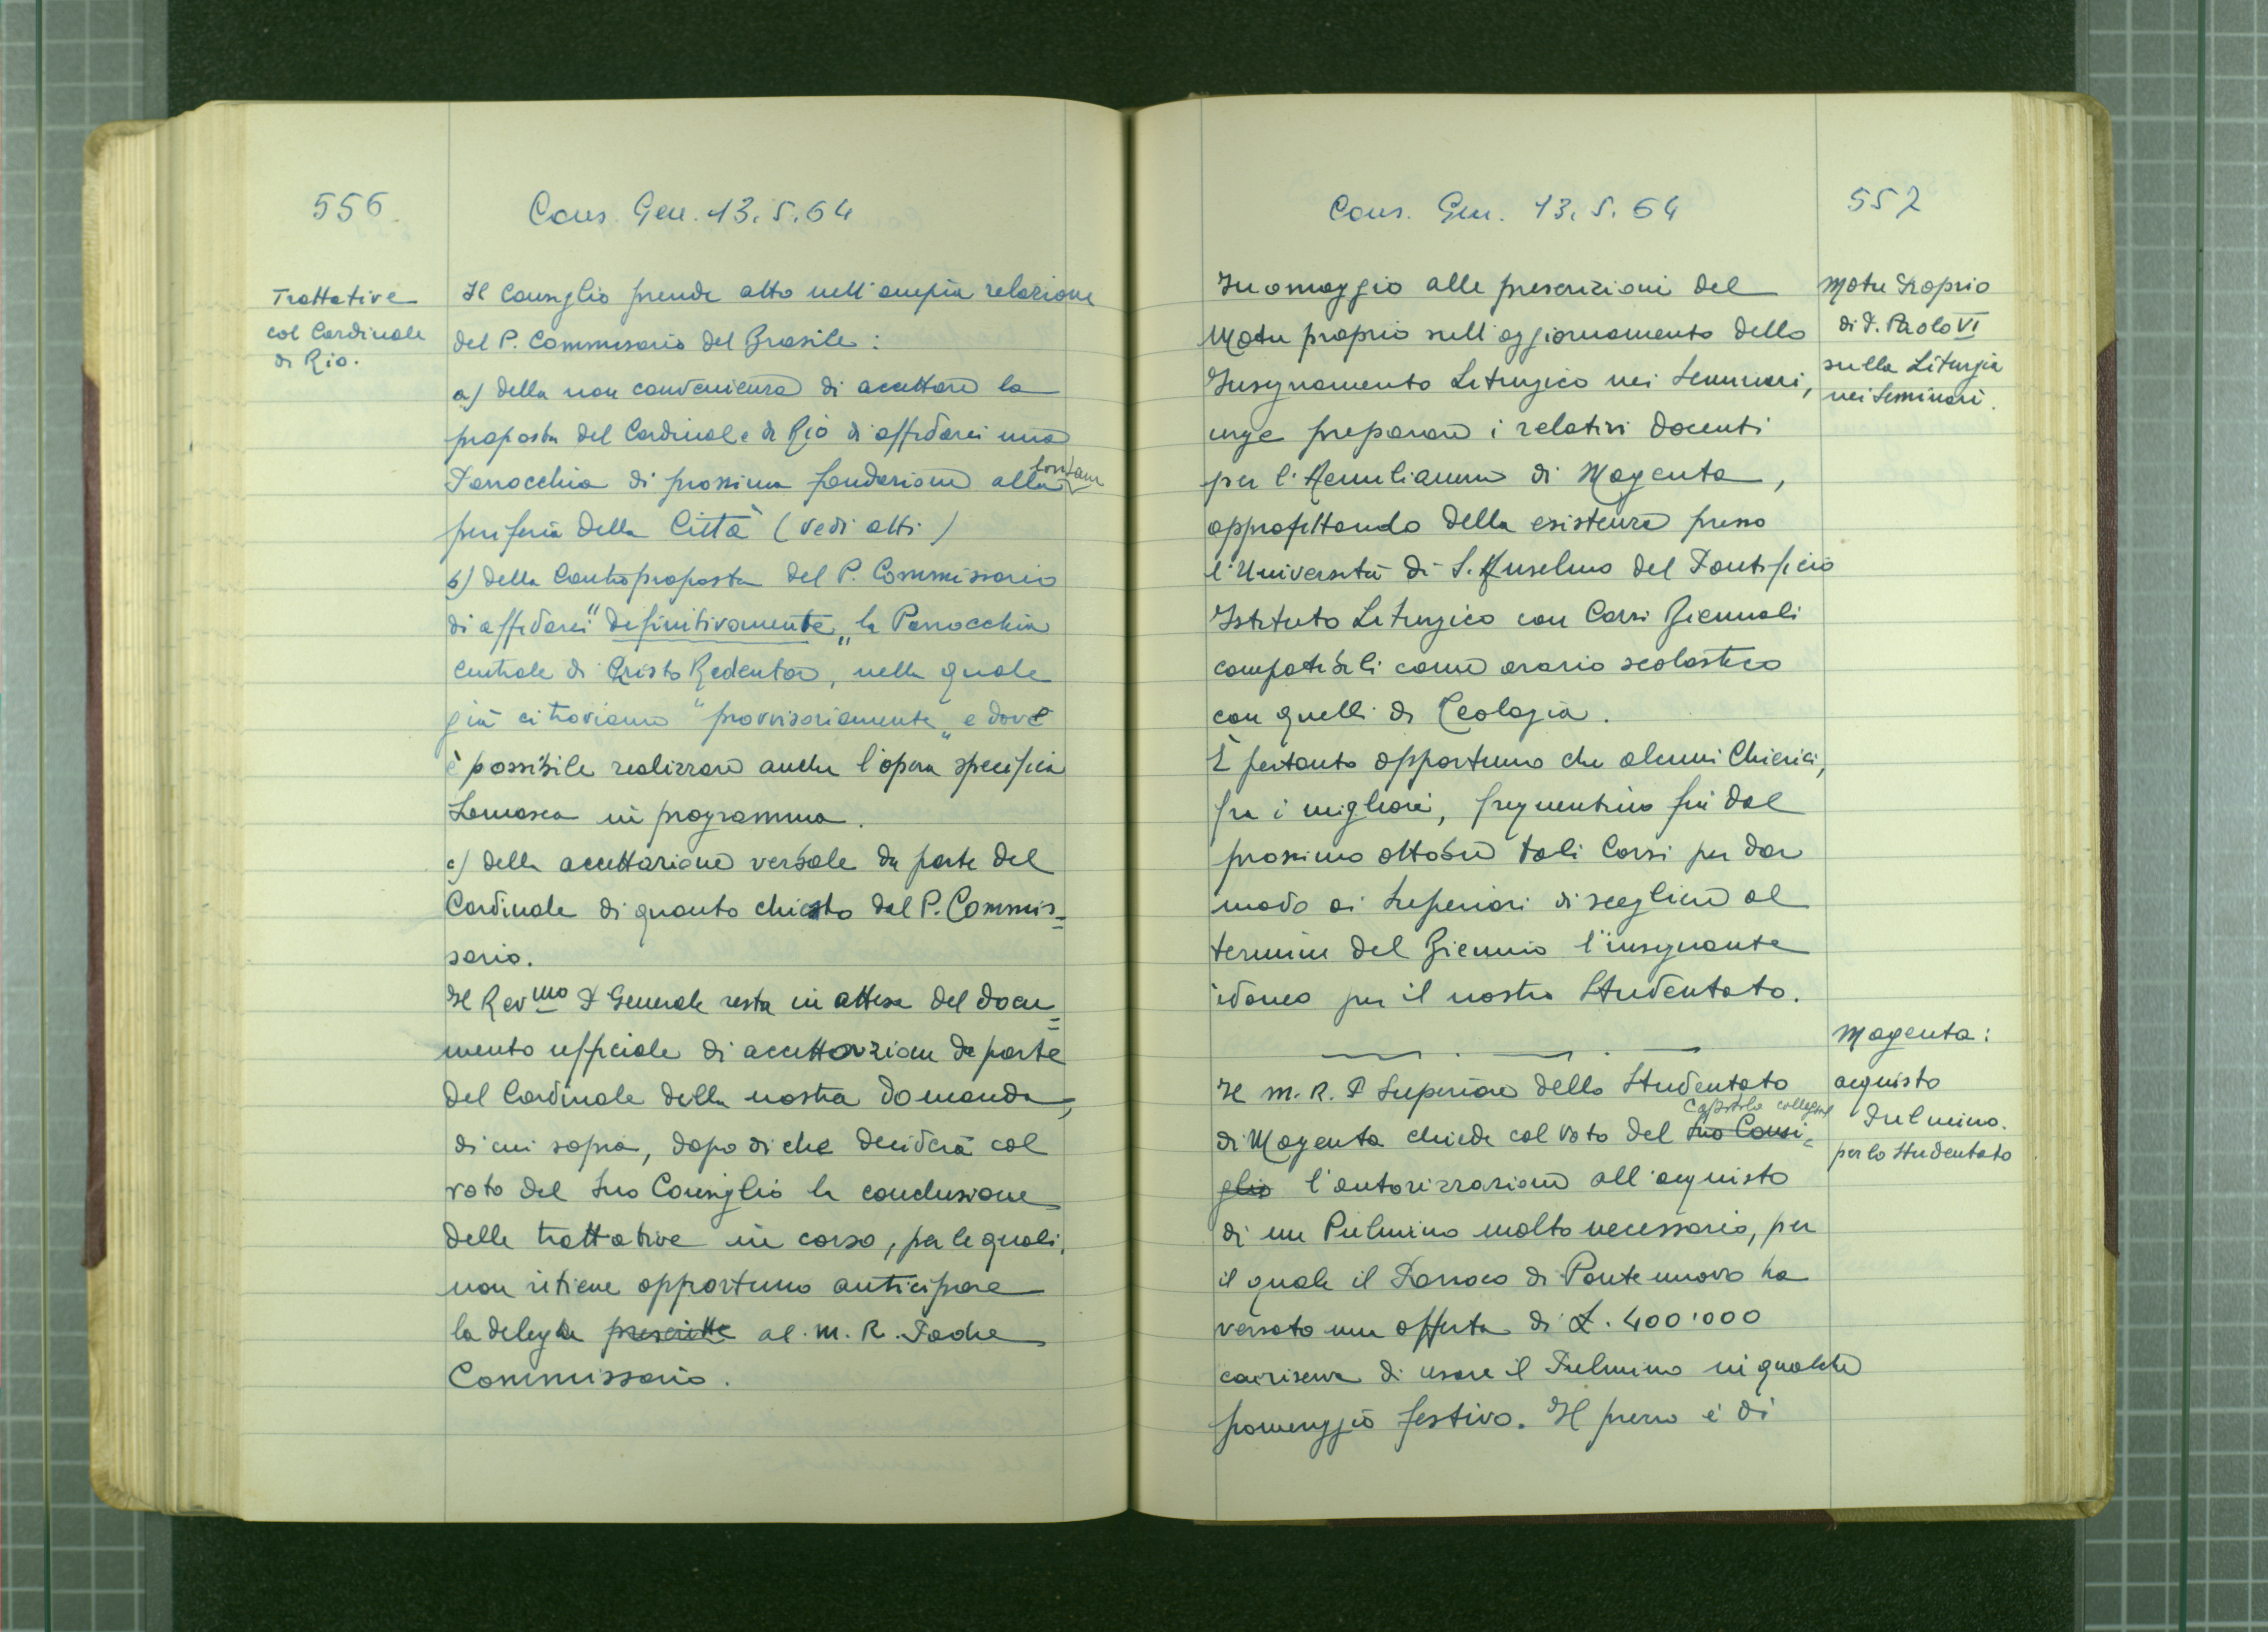 556
Cons. Gen. 13.5.64
Trattative
col Cardinale
di Rio.
Il Consiglio prende atto nell'ampia relazione
del P. Commissario del Brasile:
a) della non convenienza di accettare la
proposta del Cardinale di Rio di affidarci una
Parrocchia di prossima fondazione alla lontana
periferia della Città (vedi atti)
b) della Controproposta del P. Commissario
di affidarci "definitivamente" la Parrocchia
Centrale di Cristo Redentore, nella quale
già ci troviamo "provvisoriamente" e dove
è possibile realizzare anche l'opera specifica
Somasca in programma.
c) della accettazione verbale da parte del
Cardinale di quanto chiesto dal P. Commis=
sario.
Il Rev.mo P. Generale resta in attesa del docu=
mento ufficiale di accettazione da parte
del Cardinale della nostra domanda,
di cui sopra, dopo di che deciderà col
voto del suo Consiglio la conclusione
delle trattative in corso, per le quali,
non ritiene opportuno anticipare
la delega prescritte al M. R. Padre
Commissario.
Cons. Gen. 13.5.64
557
In omaggio alle prescrizioni del
Motu proprio sull'aggiornamento dello
Insegnamento Liturgico nei Seminari,
urge preparare i relativi docenti
per l'Aemilianum di Magenta,
approfittando della esistenza presso
l'Università di S. Anselmo del Pontificio
Istituto Liturgico con Corsi Biennali
compatibili come orario scolastico
con quelli di Teologia.
È pertanto opportuno che alcuni Chierici,
fra i migliori, frequentino fin dal
prossimo ottobre tali Corsi per dar
modo ai Superiori di scegliere al
termine del Biennio l'insegnante
idoneo per il nostro Studentato.
Motu Proprio
di P. Paolo VI
sulla Liturgia
nei Seminari.
Il M. R. P. Superiore dello Studentato
di Magenta chiede col voto del suo Consi= Capitolo collegiale
glio l'autorizzazione all'acquisto
di un Pulmino molto necessario, per
il quale il Parroco di Pontenuovo ha
versato una offerta di £. 400'000
con riserva di usare il Pulmino in qualche
pomeriggio festivo. Il prezzo è di
Magenta:
acquisto
Pulmino.
per lo Studentato